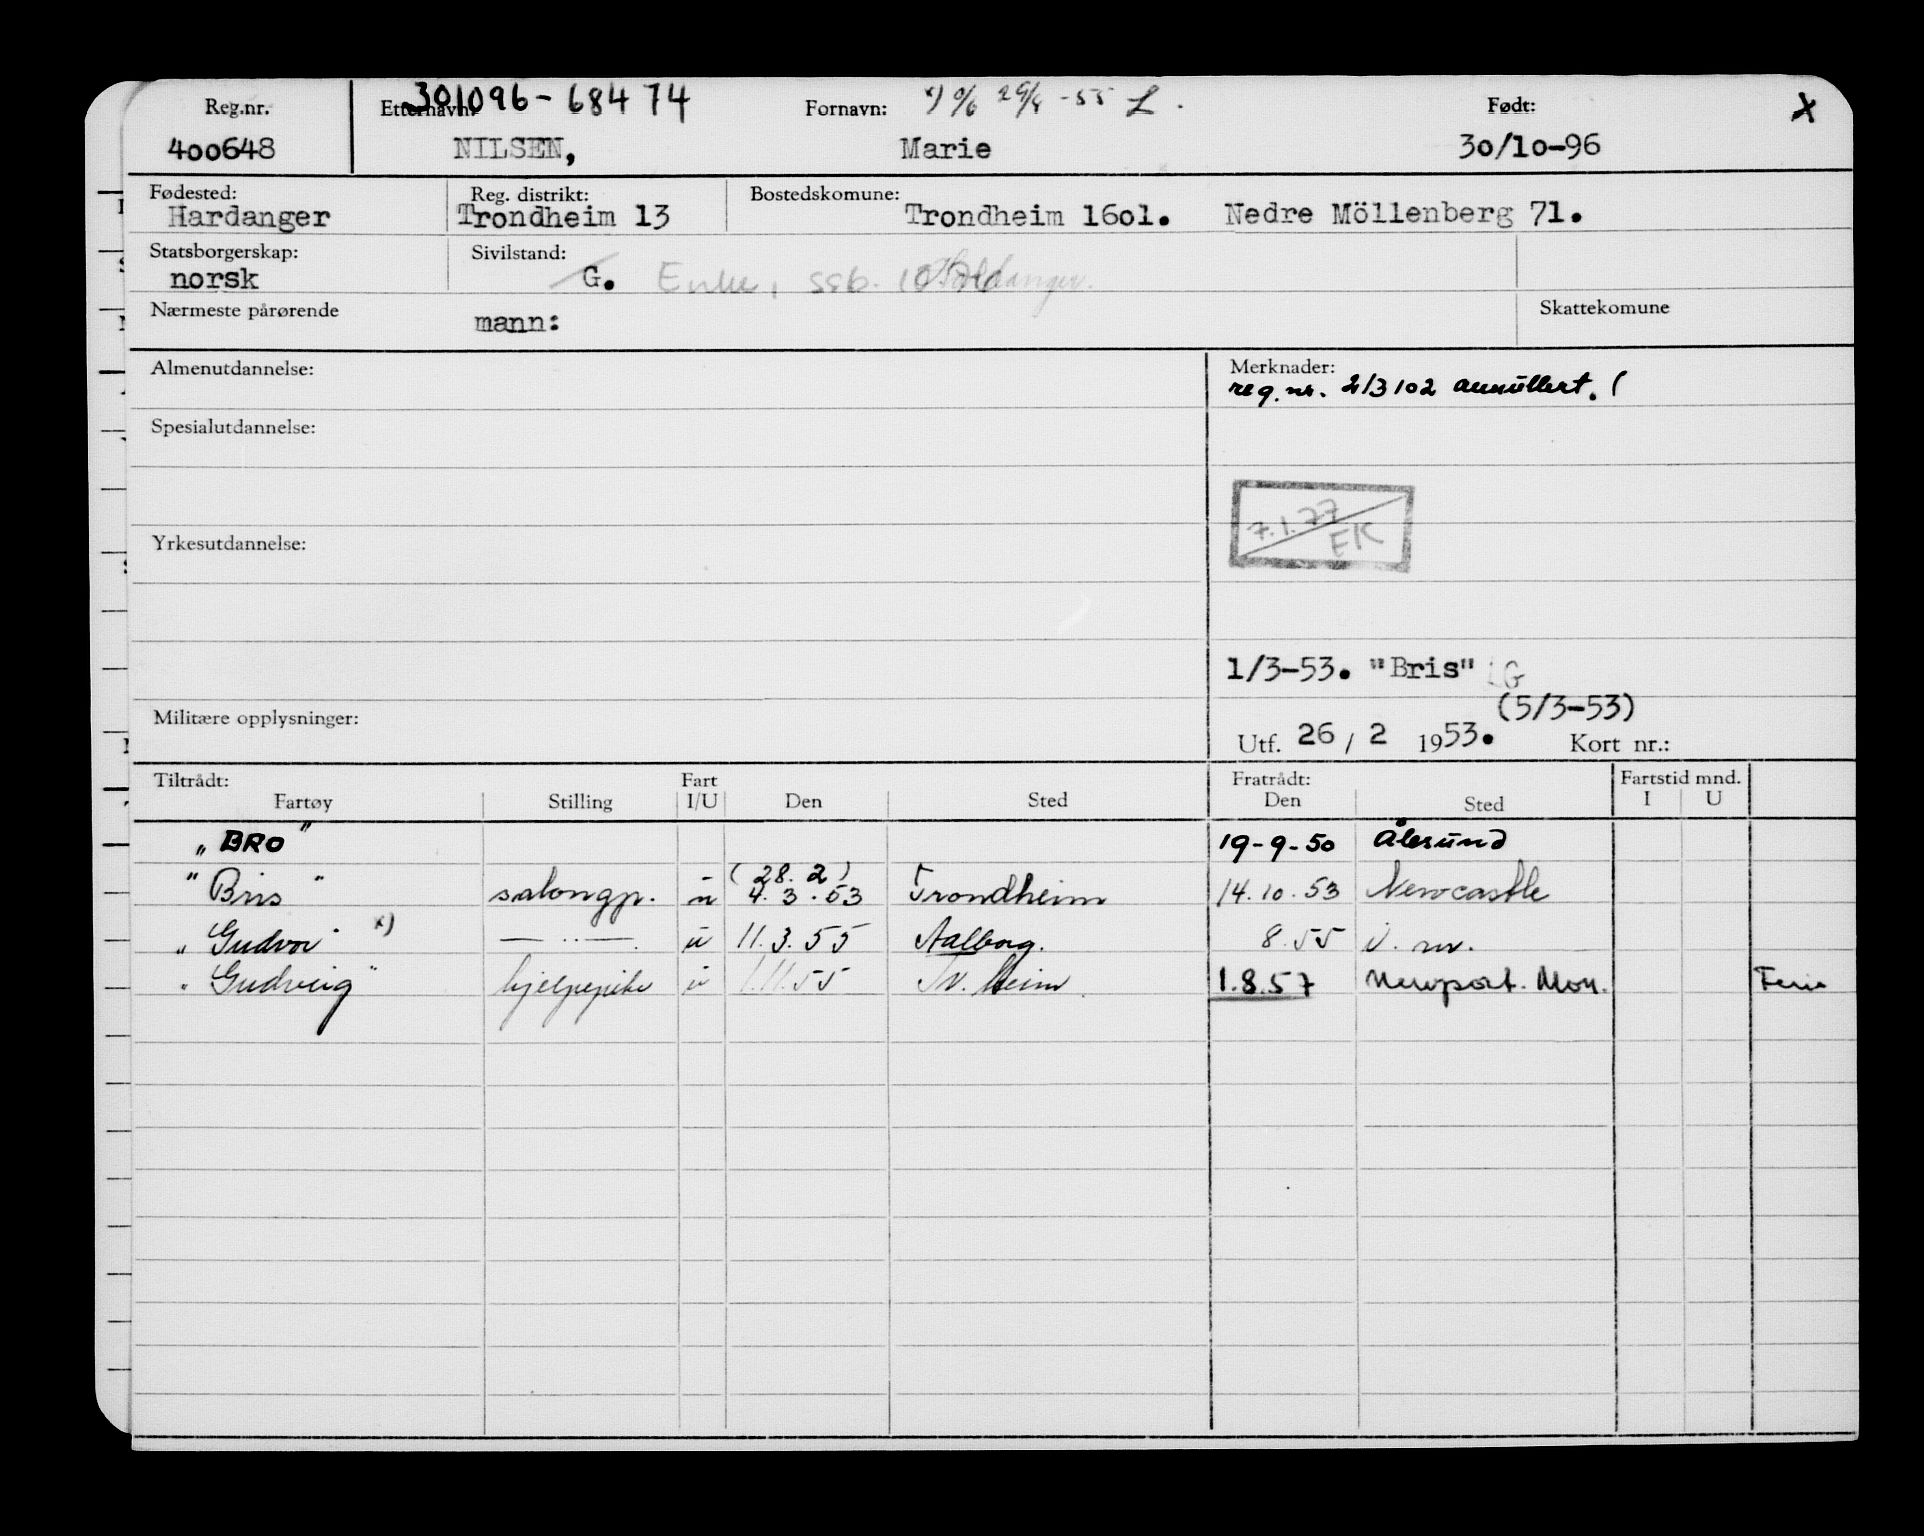 301096-68474
Reg.nr. Etternavn: Fornavn: x) % 29/8 -55 L. Født: x
400648 NILSEN, Marie 30/10-96
Fødested: Reg. distrikt: Bostedskomune:
Hardanger Trondheim 13 Trondheim 1601. Nedre Möllenberg 71.
Statsborgerskap: Sivilstand:
norsk G. Enke, ssb. Hardanger.
Nærmeste pårørende mann: Skattekomune
Almenutdannelse: Merknader:
reg.nr. 213102 annullert.
Spesialutdannelse:
7.1.77
EK
Yrkesutdannelse:
1/3-53. "Bris" LG
(5/3-53)
Militære opplysninger: Utf. 26 / 2 1953. Kort nr.:
Tiltrådt: Fart Fratrådt: Fartstid mnd.
Fartøy Stilling I/U Den Sted Den Sted I U
"BRO" 19-9-50 Ålesund
(28.2)
"Bris" salongp. u 4.3.53 Trondheim 14.10.53 Newcastle
"Gudvor" x) — " — . u 11.3.55 Aalborg. 8.55 i. nv.
"Gudveig" hjelpepike u 1.11.55 Tr.heim 1.8.57 Newport. Mon. Ferie